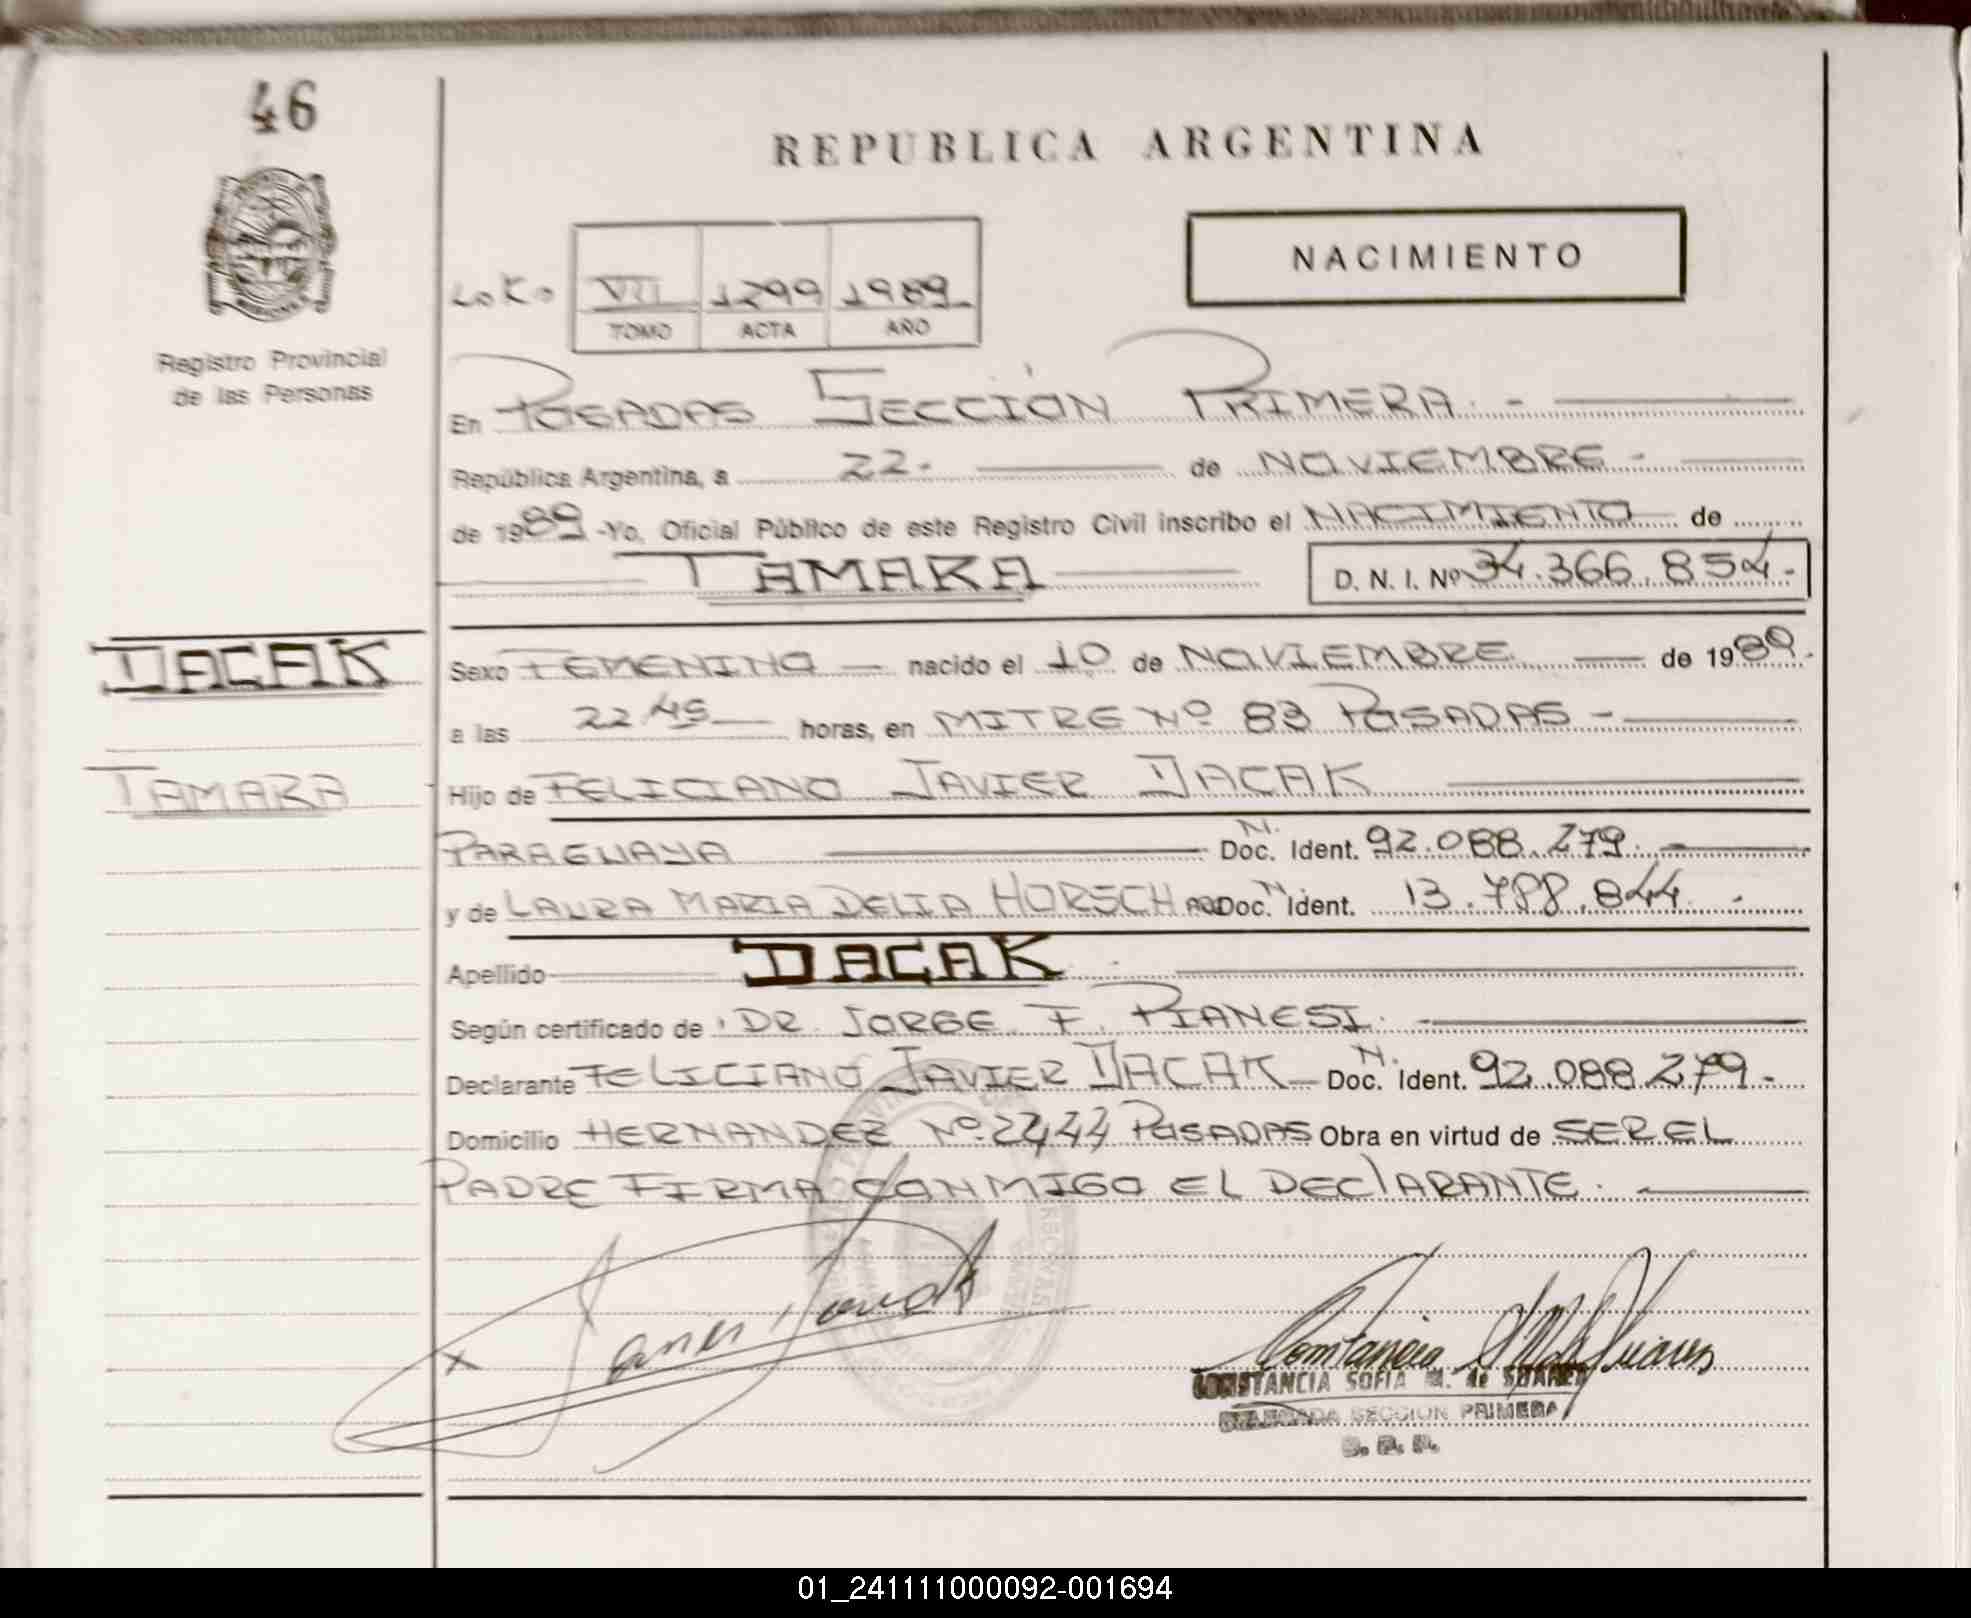 46
REPUBLICA ARGENTINA
NACIMIENTO
VII 1299 1989
TOMO ACTA AÑO
Registro Provincial
de las Personas
En POSADAS SECCIÓN PRIMERA. -
República Argentina, a 22. de NOVIEMBRE -
de 1989 -Yo, Oficial Público de este Registro Civil inscribo el NACIMIENTO de
TAMARA D. N. I. Nº 34.366.854.-
DACAK
Sexo FEMENINO nacido el 10 de NOVIEMBRE de 1989.
a las 22.45 horas, en MITRE Nº 83 POSADAS -
TAMARA
Hijo de FELICIANO JAVIER DACAK
PARAGUAYA N. Doc. Ident. 92.088.279.
y de LAURA MARIA DELIA HORSCH N Doc. Ident. 13.788.844. -
Apellido DACAK
Según certificado de DR. JORGE F. PIANESI.
Declarante FELICIANO JAVIER DACAK N. Doc. Ident. 92.088.279.-
Domicilio HERNANDEZ Nº 2444 POSADAS Obra en virtud de SER EL
PADRE FIRMA CONMIGO EL DECLARANTE.
x
CONSTANCIA SOFIA M. de SUAREZ
DELEGADA SECCION PRIMERA
01_241111000092-001694